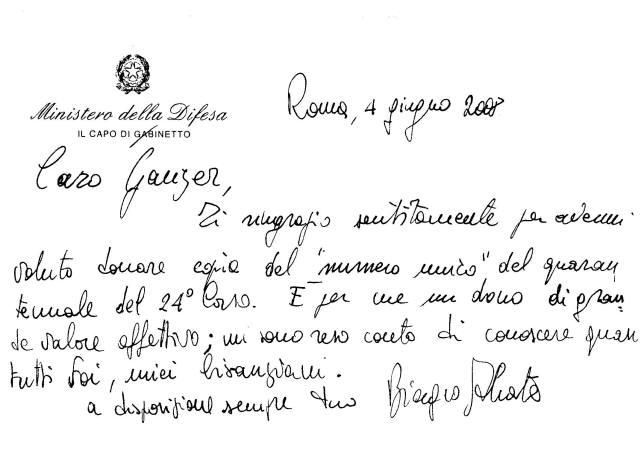 Roma, 4 giugno 2008
Ministero della Difesa
IL CAPO DI GABINETTO
Caro Ganzer,
Ti ringrazio sentitamente per avermi
voluto donare copia del "numero unico" del quaran
tennale del 24° Corso. E per me un dono di gran
de valore affettivo; mi sono reso conto di conoscere quan
tutti Voi, mici
a disposizione sempre tuo Biagio Abrate